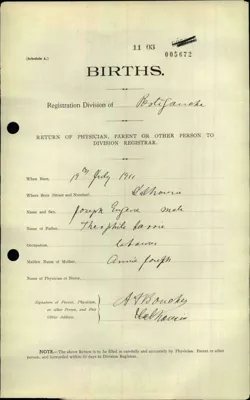 11 03
005672
(Schedule A.)
BIRTHS.
Registration Division of Restigouche
RETURN OF PHYSICIAN, PARENT OR OTHER PERSON TO
DIVISION REGISTRAR.
When Born, 19th July 1911
Where Born (Street and Number), Dalhousie
Name and Sex, Joseph Eugene male
Name of Father, Theophile
Occupation, Laborer
Maiden Name of Mother, Annie Joseph
Name of Physician or Nurse,
Signature of Parent, Physician,
or other Person, and Post
Office Address,
Dalhousie
NOTE.—The above Return is to be filed in correctly and accurately by Physician, Parent or other
person, and forwarded within 30 days to Division Registrar.